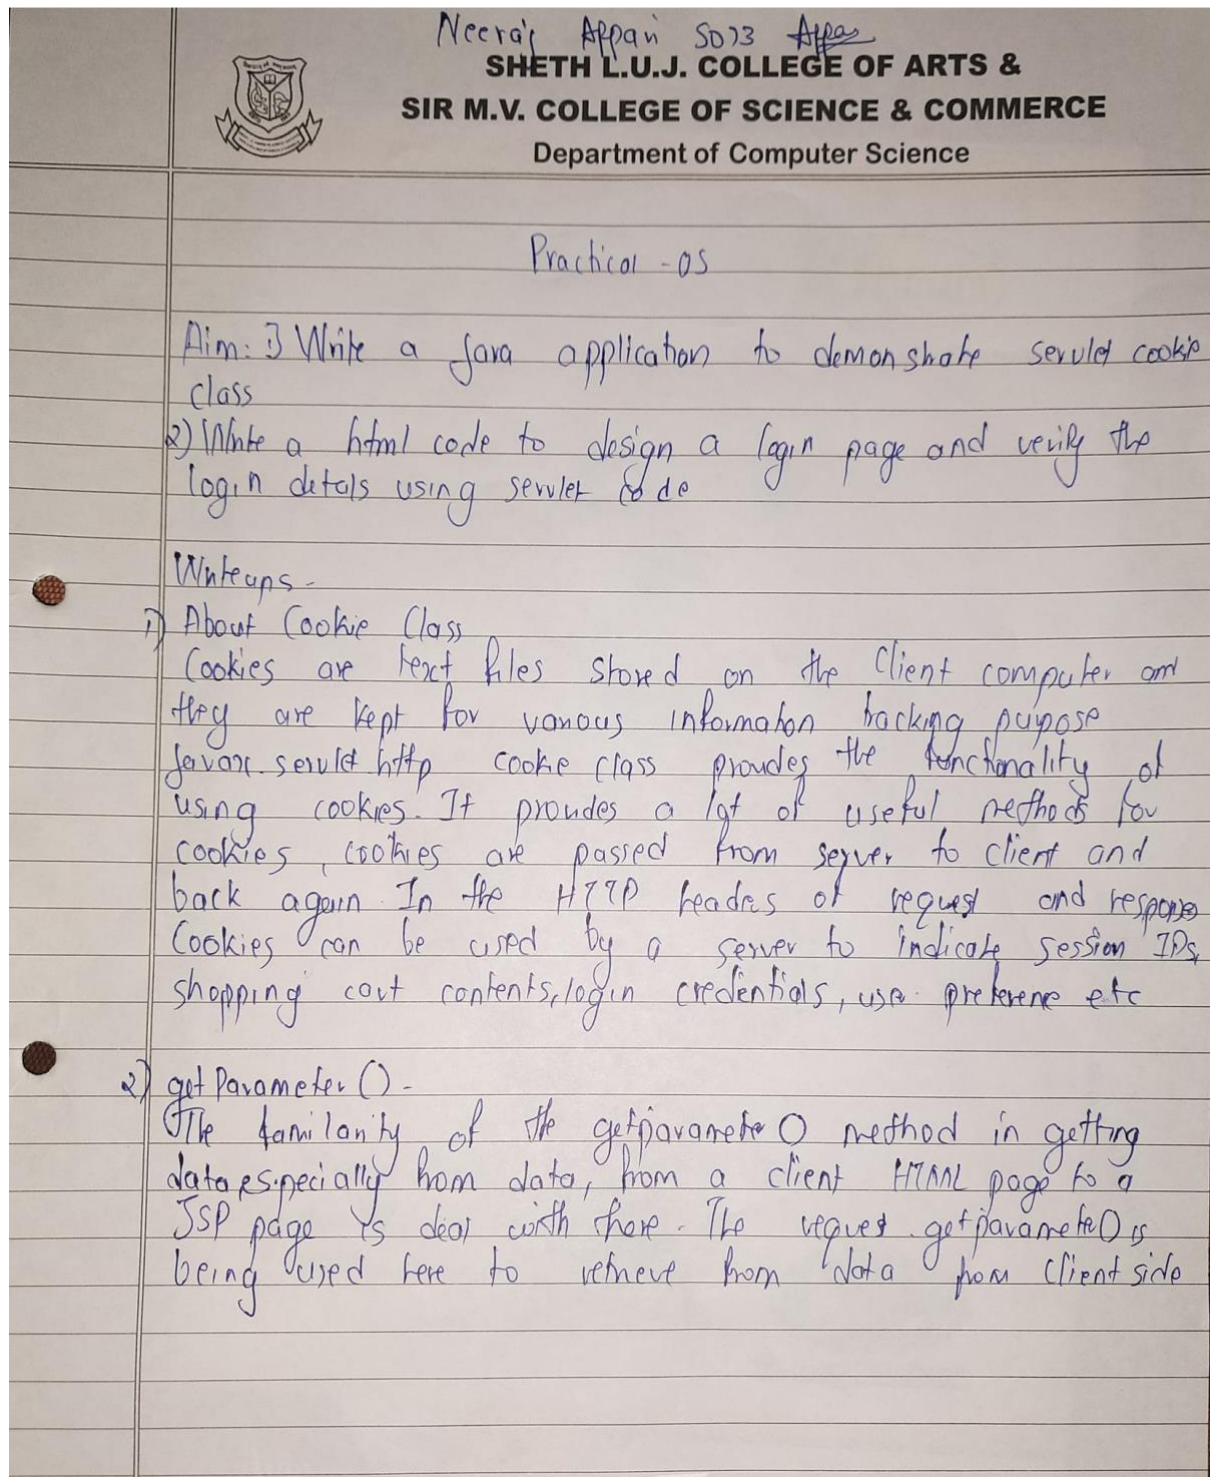 Neeraj Appari S073
SHETH L.U.J. COLLEGE OF ARTS &
SIR M.V. COLLEGE OF SCIENCE & COMMERCE
Department of Computer Science
Practical - 05
Aim: 1) Write a Java application to demonstrate servlet cookie
class
2) Write a html code to design a login page and verify the
login detals using servlet code
Writeups -
1) About Cookie Class
Cookies are text files stored on the Client computer and
they are kept for various information tracking purpose
Javax.servlet http cookie class provides the functionality of
using cookies. It provides a lot of useful methods for
cookies, cookies are passed from server to client and
back again In the HTTP headrs of request and response
Cookies can be used by a server to indicate session IDs,
shopping cart contents, login credentials, user preference etc
2) get Parameter () -
The familarity of the getparameter () method in getting
data especially from data, from a client HTML page to a
JSP page is deal with there. The request.getparameter() is
being used here to retrieve from data from Client side